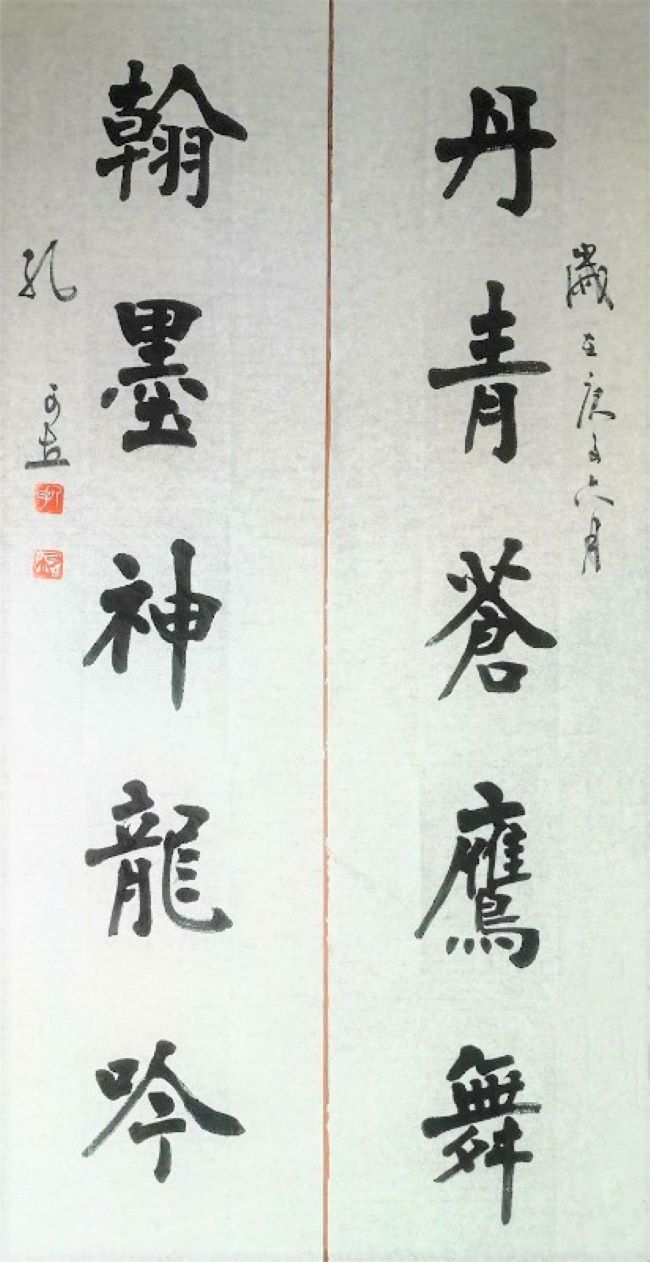 丹青蒼鷹舞
歲在庚子六月
翰墨神龍吟
孔可立